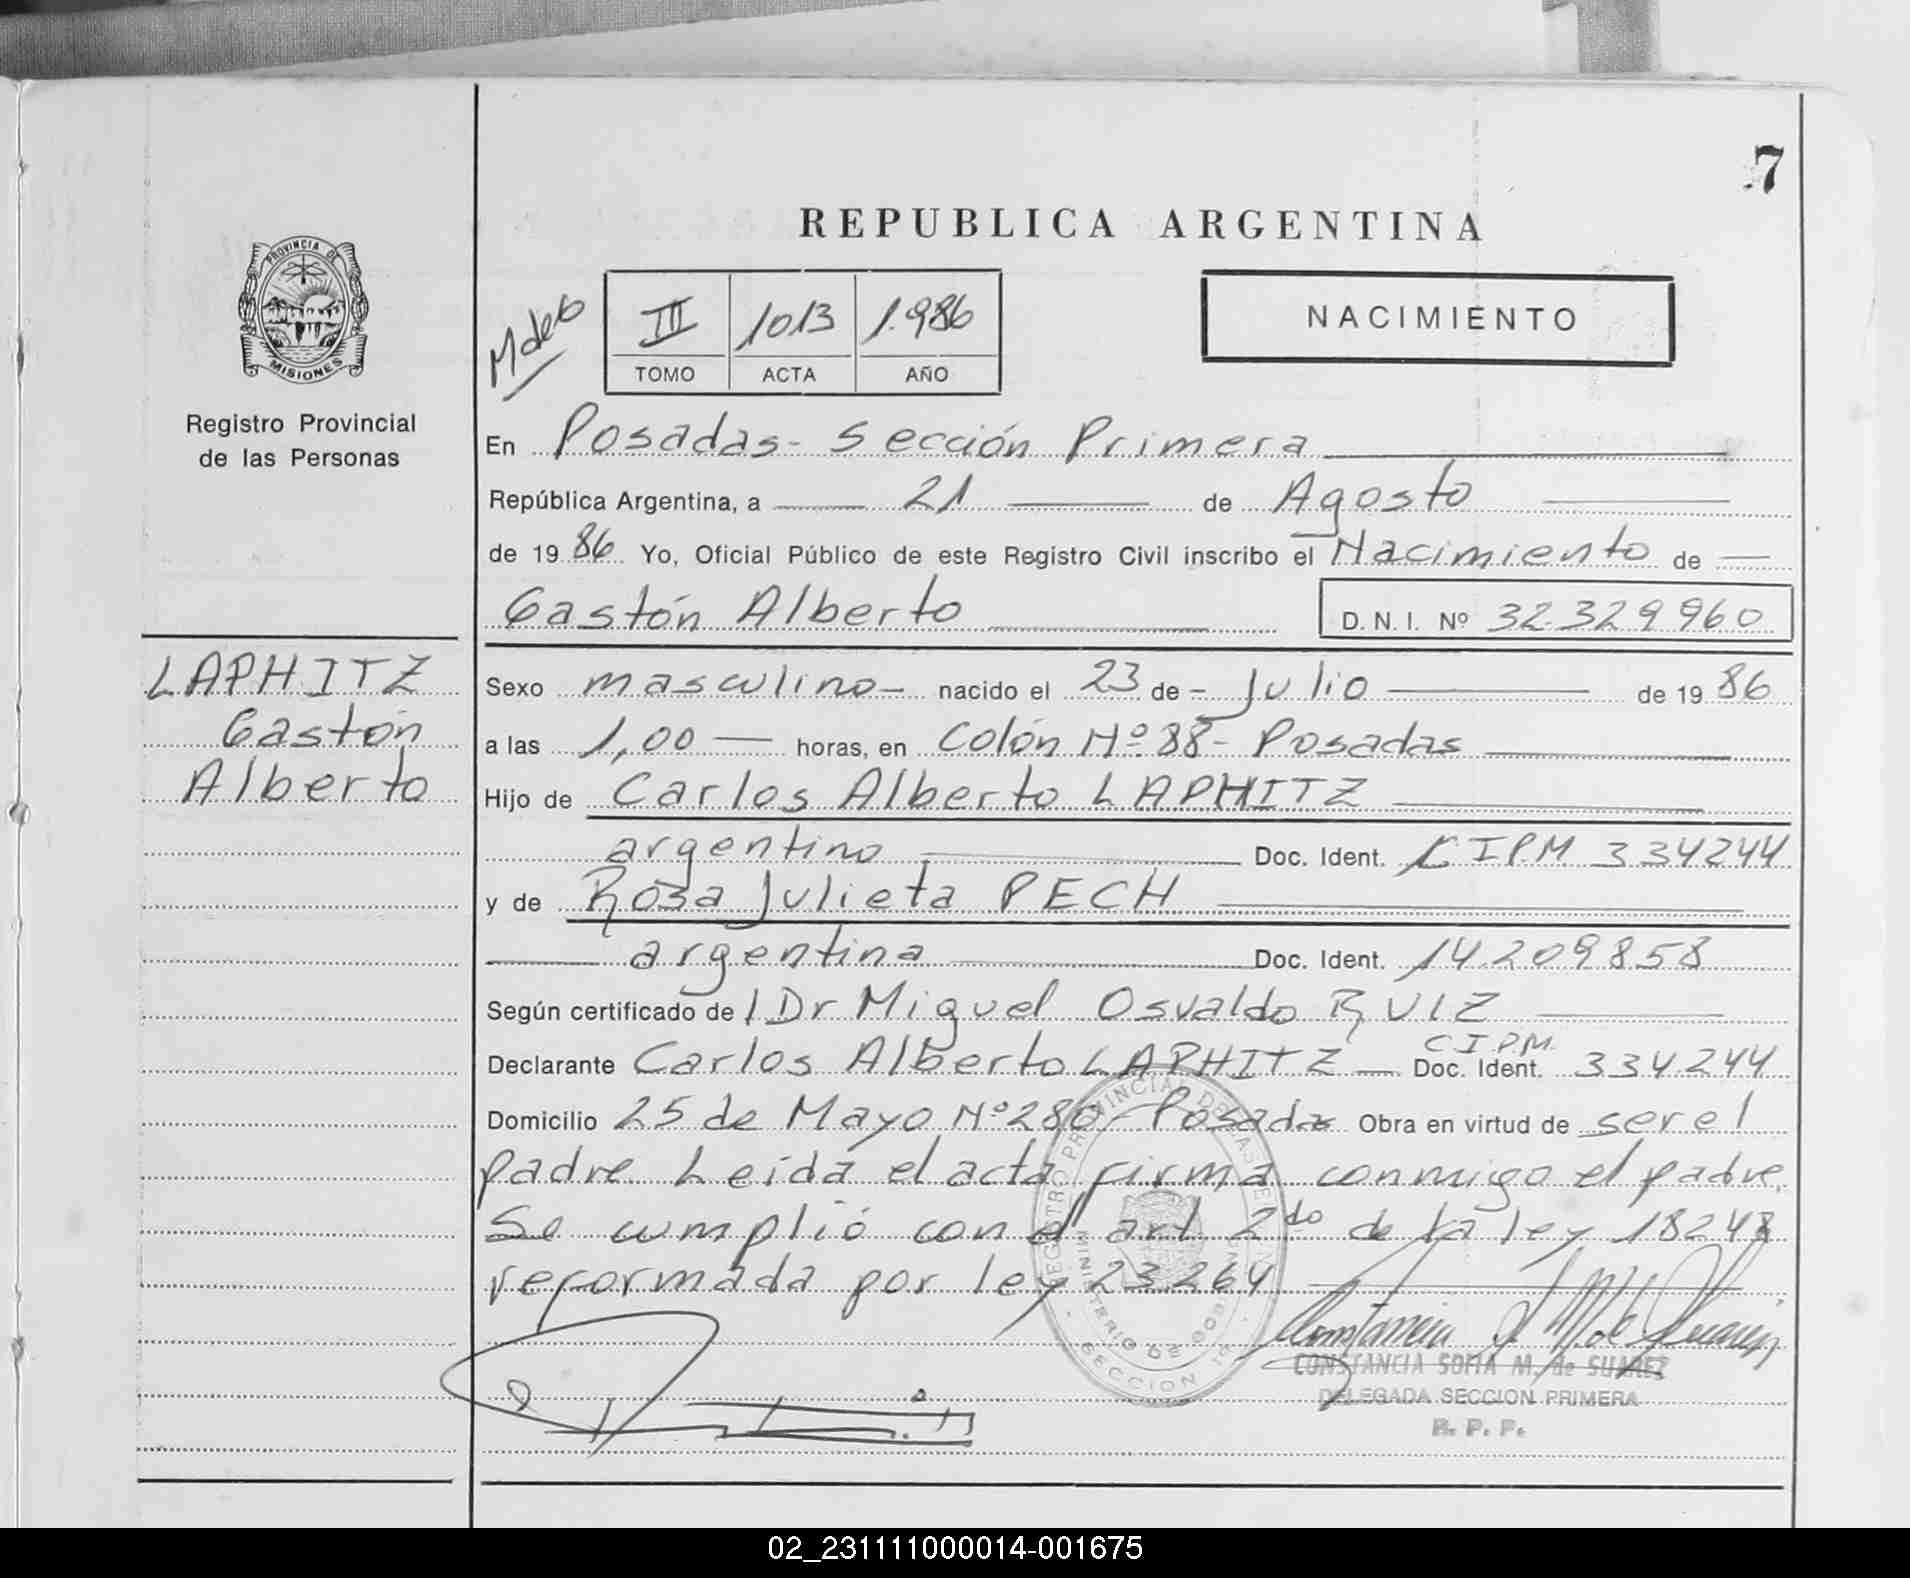 7
REPUBLICA ARGENTINA
PROVINCIA DE
MISIONES
Registro Provincial
de las Personas
III 1013 1.986
TOMO ACTA AÑO
NACIMIENTO
En Posadas- Sección Primera
República Argentina, a 21 de Agosto
de 19 86 Yo, Oficial Público de este Registro Civil inscribo el Nacimiento de
Gastón Alberto D. N. I. Nº 32.329960
LAPHITZ
Gastón
Alberto
Sexo masculino- nacido el 23 de - Julio de 19 86
a las 1,00 horas, en Colón Nº 88- Posadas
Hijo de Carlos Alberto LAPHITZ
argentino Doc. Ident. CIPM 334244
y de Rosa Julieta PECH
argentina Doc. Ident. 14.209858
Según certificado de l Dr Miguel Osvaldo RUIZ
Declarante Carlos Alberto LAPHITZ Doc. Ident. C.I.P.M. 334244
Domicilio 25 de Mayo Nº 280- Posadas Obra en virtud de ser el
padre Leida el acta, firma conmigo el padre.
Se cumplió con el art 2do de la ley 18248
reformada por ley 23264
REGISTRO PROVINCIAL DE LAS PERSONAS
MINISTERIO DE GOBIERNO
SECCION 1a
CONSTANCIA SOFIA M. de SUAREZ
DELEGADA SECCION PRIMERA
R. P. P.
02_231111000014-001675